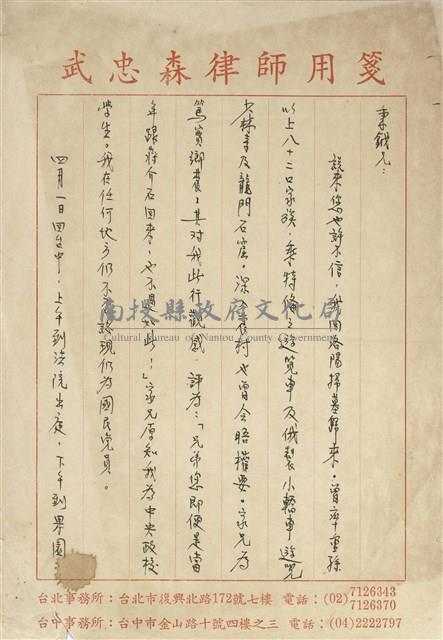 武忠森律師用箋
秉鉞兄：
說來您也許不信，我回洛陽掃墓歸來。曾率重孫
以上八十二口家族，乘特備之遊覽車及俄製小轎車遊覽
少林寺及龍門石窟。深入農村也曾會晤權要。家兄為
篤實鄉農；其對我此行觀感，評為：「兄弟您即便是當
年跟蔣介石回來，也不過如此！」家兄原知我為中央政校
學生。我在任何地方仍不諱認現仍為國民党員。
四月一日回台中，上午到法院出庭，下午到果園
南投縣政府文化局
Cultural Bureau of Nantou County Government
台北事務所：台北市復興北路172號七樓 電話：(02)7126343
7126370
台中事務所：台中市金山路十號四樓之三 電話：(04)2222797